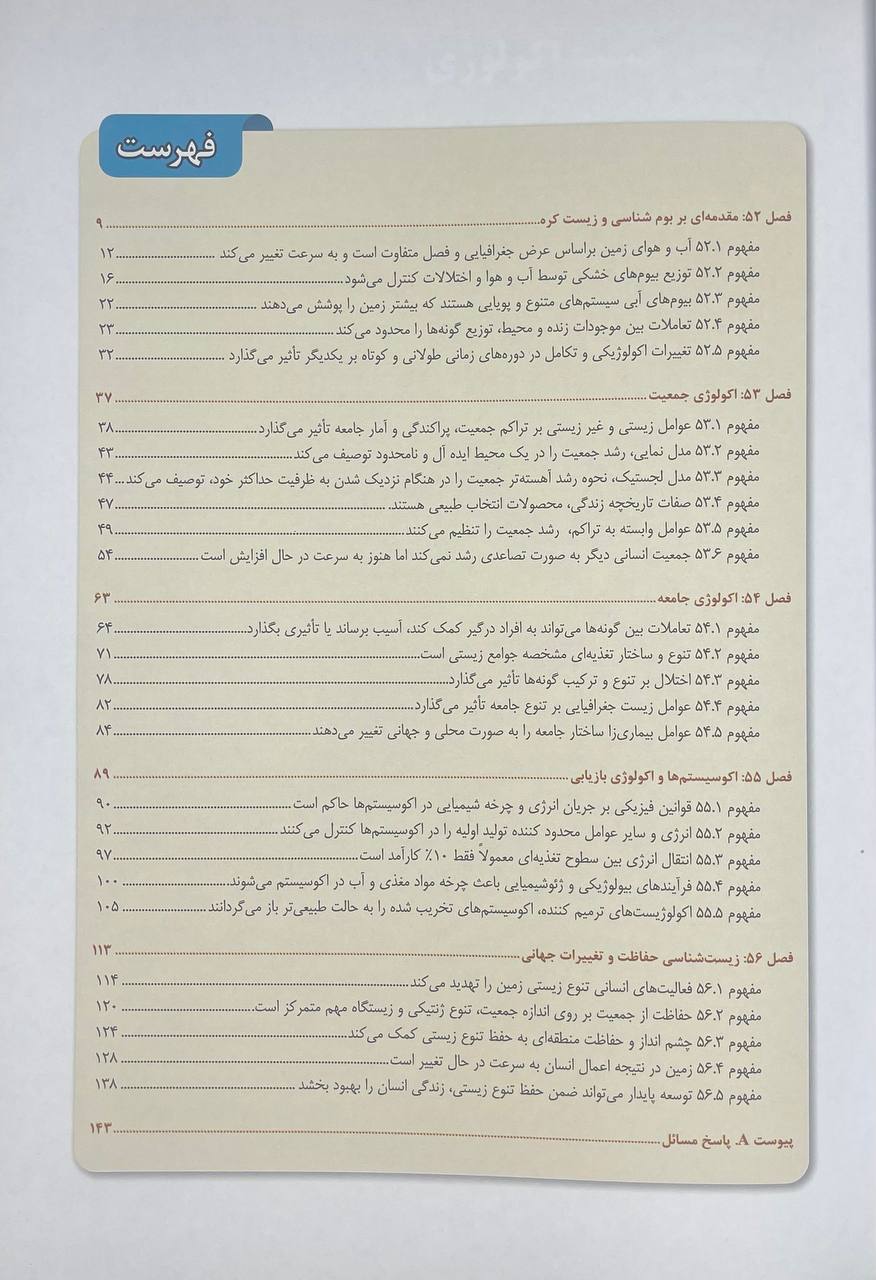 فهرست
فصل ۵۲: مقدمه‌ای بر بوم شناسی و زیست کره ........ ۹
مفهوم ۵۲.۱ آب و هوای زمین براساس عرض جغرافیایی و فصل متفاوت است و به سرعت تغییر می‌کند ........ ۱۲
مفهوم ۵۲.۲ توزیع بیوم‌های خشکی توسط آب و هوا و اختلالات کنترل می‌شود ........ ۱۶
مفهوم ۵۲.۳ بیوم‌های آبی سیستم‌های متنوع و پویایی هستند که بیشتر زمین را پوشش می‌دهند ........ ۲۲
مفهوم ۵۲.۴ تعاملات بین موجودات زنده و محیط، توزیع گونه‌ها را محدود می‌کند ........ ۲۳
مفهوم ۵۲.۵ تغییرات اکولوژیکی و تکامل در دوره‌های زمانی طولانی و کوتاه بر یکدیگر تأثیر می‌گذارد ........ ۳۲
فصل ۵۳: اکولوژی جمعیت ........ ۳۷
مفهوم ۵۳.۱ عوامل زیستی و غیر زیستی بر تراکم جمعیت، پراکندگی و آمار جامعه تأثیر می‌گذارد ........ ۳۸
مفهوم ۵۳.۲ مدل نمایی، رشد جمعیت را در یک محیط ایده آل و نامحدود توصیف می‌کند ........ ۴۳
مفهوم ۵۳.۳ مدل لجستیک، نحوه رشد آهسته‌تر جمعیت را در هنگام نزدیک شدن به ظرفیت حداکثر خود، توصیف می‌کند ... ۴۴
مفهوم ۵۳.۴ صفات تاریخچه زندگی، محصولات انتخاب طبیعی هستند. ........ ۴۷
مفهوم ۵۳.۵ عوامل وابسته به تراکم، رشد جمعیت را تنظیم می‌کنند ........ ۴۹
مفهوم ۵۳.۶ جمعیت انسانی دیگر به صورت تصاعدی رشد نمی‌کند اما هنوز به سرعت در حال افزایش است ........ ۵۴
فصل ۵۴: اکولوژی جامعه ........ ۶۳
مفهوم ۵۴.۱ تعاملات بین گونه‌ها می‌تواند به افراد درگیر کمک کند، آسیب برساند یا تأثیری بگذارد ........ ۶۴
مفهوم ۵۴.۲ تنوع و ساختار تغذیه‌ای مشخصه جوامع زیستی است ........ ۷۱
مفهوم ۵۴.۳ اختلال بر تنوع و ترکیب گونه‌ها تأثیر می‌گذارد ........ ۷۸
مفهوم ۵۴.۴ عوامل زیست جغرافیایی بر تنوع جامعه تأثیر می‌گذارد ........ ۸۲
مفهوم ۵۴.۵ عوامل بیماری‌زا ساختار جامعه را به صورت محلی و جهانی تغییر می‌دهند ........ ۸۴
فصل ۵۵: اکوسیستم‌ها و اکولوژی بازیابی ........ ۸۹
مفهوم ۵۵.۱ قوانین فیزیکی بر جریان انرژی و چرخه شیمیایی در اکوسیستم‌ها حاکم است ........ ۹۰
مفهوم ۵۵.۲ انرژی و سایر عوامل محدود کننده تولید اولیه را در اکوسیستم‌ها کنترل می‌کنند ........ ۹۲
مفهوم ۵۵.۳ انتقال انرژی بین سطوح تغذیه‌ای معمولاً فقط ۱۰٪ کارآمد است ........ ۹۷
مفهوم ۵۵.۴ فرآیندهای بیولوژیکی و ژئوشیمیایی باعث چرخه مواد مغذی و آب در اکوسیستم می‌شوند ........ ۱۰۰
مفهوم ۵۵.۵ اکولوژیست‌های ترمیم کننده، اکوسیستم‌های تخریب شده را به حالت طبیعی‌تر باز می‌گردانند ........ ۱۰۵
فصل ۵۶: زیست‌شناسی حفاظت و تغییرات جهانی ........ ۱۱۳
مفهوم ۵۶.۱ فعالیت‌های انسانی تنوع زیستی زمین را تهدید می‌کند ........ ۱۱۴
مفهوم ۵۶.۲ حفاظت از جمعیت بر روی اندازه جمعیت، تنوع ژنتیکی و زیستگاه مهم متمرکز است ........ ۱۲۰
مفهوم ۵۶.۳ چشم انداز و حفاظت منطقه‌ای به حفظ تنوع زیستی کمک می‌کند ........ ۱۲۴
مفهوم ۵۶.۴ زمین در نتیجه اعمال انسان به سرعت در حال تغییر است ........ ۱۲۸
مفهوم ۵۶.۵ توسعه پایدار می‌تواند ضمن حفظ تنوع زیستی، زندگی انسان را بهبود بخشد ........ ۱۳۸
پیوست A. پاسخ مسائل ........ ۱۴۳